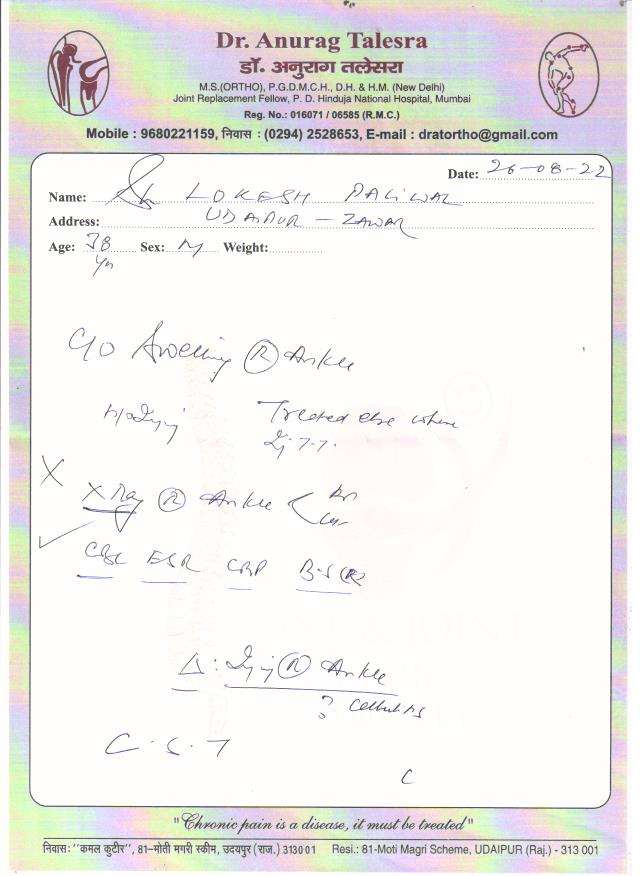 Dr. Anurag Talesra
डॉ. अनुराग तलेसरा
M.S.(ORTHO), P.G.D.M.C.H., D.H. & H.M. (New Delhi)
Joint Replacement Fellow, P. D. Hinduja National Hospital, Mumbai
Reg. No.: 016071 / 06585 (R.M.C.)
Mobile : 9680221159, निवास : (0294) 2528653, E-mail : dratortho@gmail.com
Date: 26-08-22
Name: LOKESH PALIWAL
Address: UDAIPUR - ZAWAR
Age: 38 Yrs Sex: M Weight:
C/O Swelling (R) Ankle
H/o Injury Treated else where
Inj T.T.
X Ray (R) Ankle < AP Lat
CBC ESR CRP
Δ: Inj (R) Ankle
? Cellulitis
C. S. T
"Chronic pain is a disease, it must be treated"
निवास: ''कमल कुटीर'', 81-मोती मगरी स्कीम, उदयपुर (राज.) 313001 Resi.: 81-Moti Magri Scheme, UDAIPUR (Raj.) - 313 001